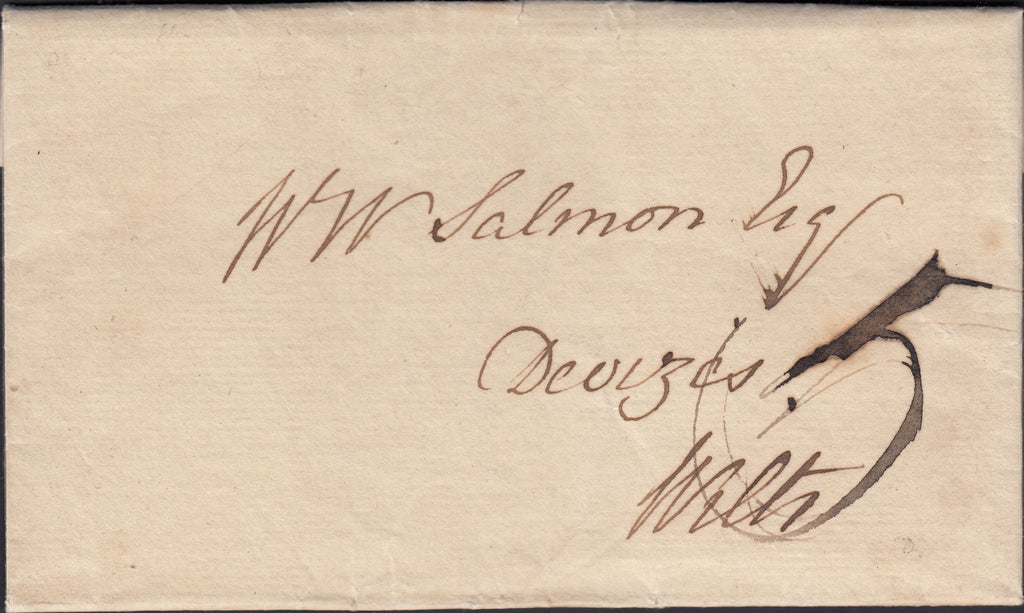 W W Salmon Esq
Devizes
5
Wilts